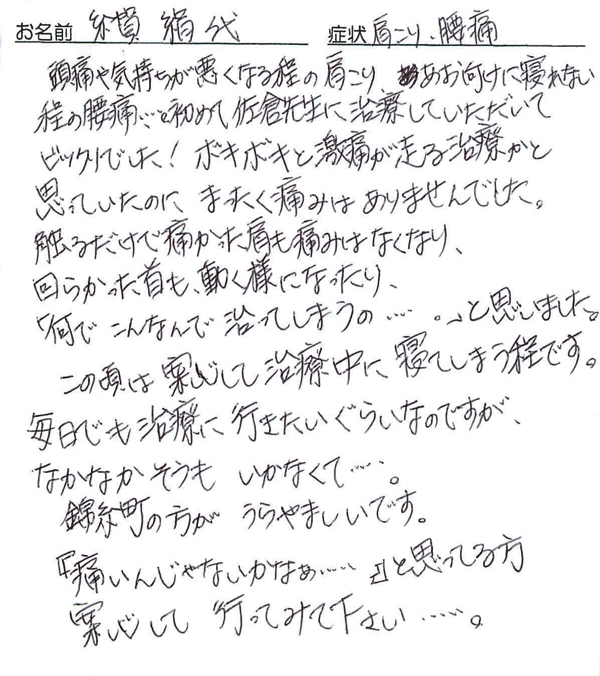 お名前 絹代 症状 肩こり、腰痛
頭痛や気持ちが悪くなる程の肩こり あお向けに寝れない
程の腰痛…初めて佐倉先生に治療していただいて
ビックリでした! ボキボキと激痛が走る治療かと
思っていたのに まったく痛みは ありませんでした。
触るだけで痛かった肩も痛みはなくなり、
回らかった首も、動く様になったり、
「何で こんなんで 治ってしまうの……。」と思いました。
この頃は 安心して 治療中に 寝てしまう程です。
毎日でも治療に 行きたいぐらいなのですが、
なかなか そうも いかなくて……。
錦糸町の方が うらやましいです。
『痛いんじゃないかなぁ……』と思ってる方
安心して 行ってみて下さい……。